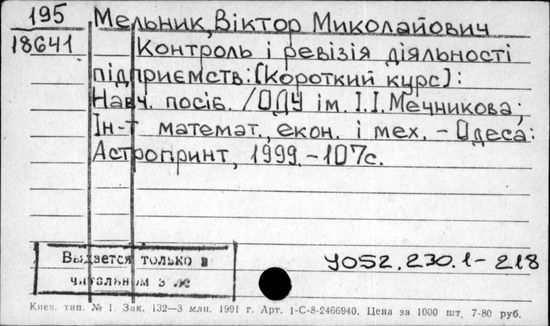 195
18641
Мельник, Віктор Миколайович
Контроль і ревізія діяльності
підприємств: [Короткий курс]:
Навч. посіб. /ОДУ ім. І.І.Мечникова;
Ін-т математ., екон. і мех. - Одеса:
Астропринт, 1999. - 107с.
Выдается только в
читальном з ле
У052.230.1-218
Киев. тип. № 1. Зак. 132—3 млн. 1991 г. Арт. 1-С-8-2466940. Цена за 1000 шт. 7-80 руб.